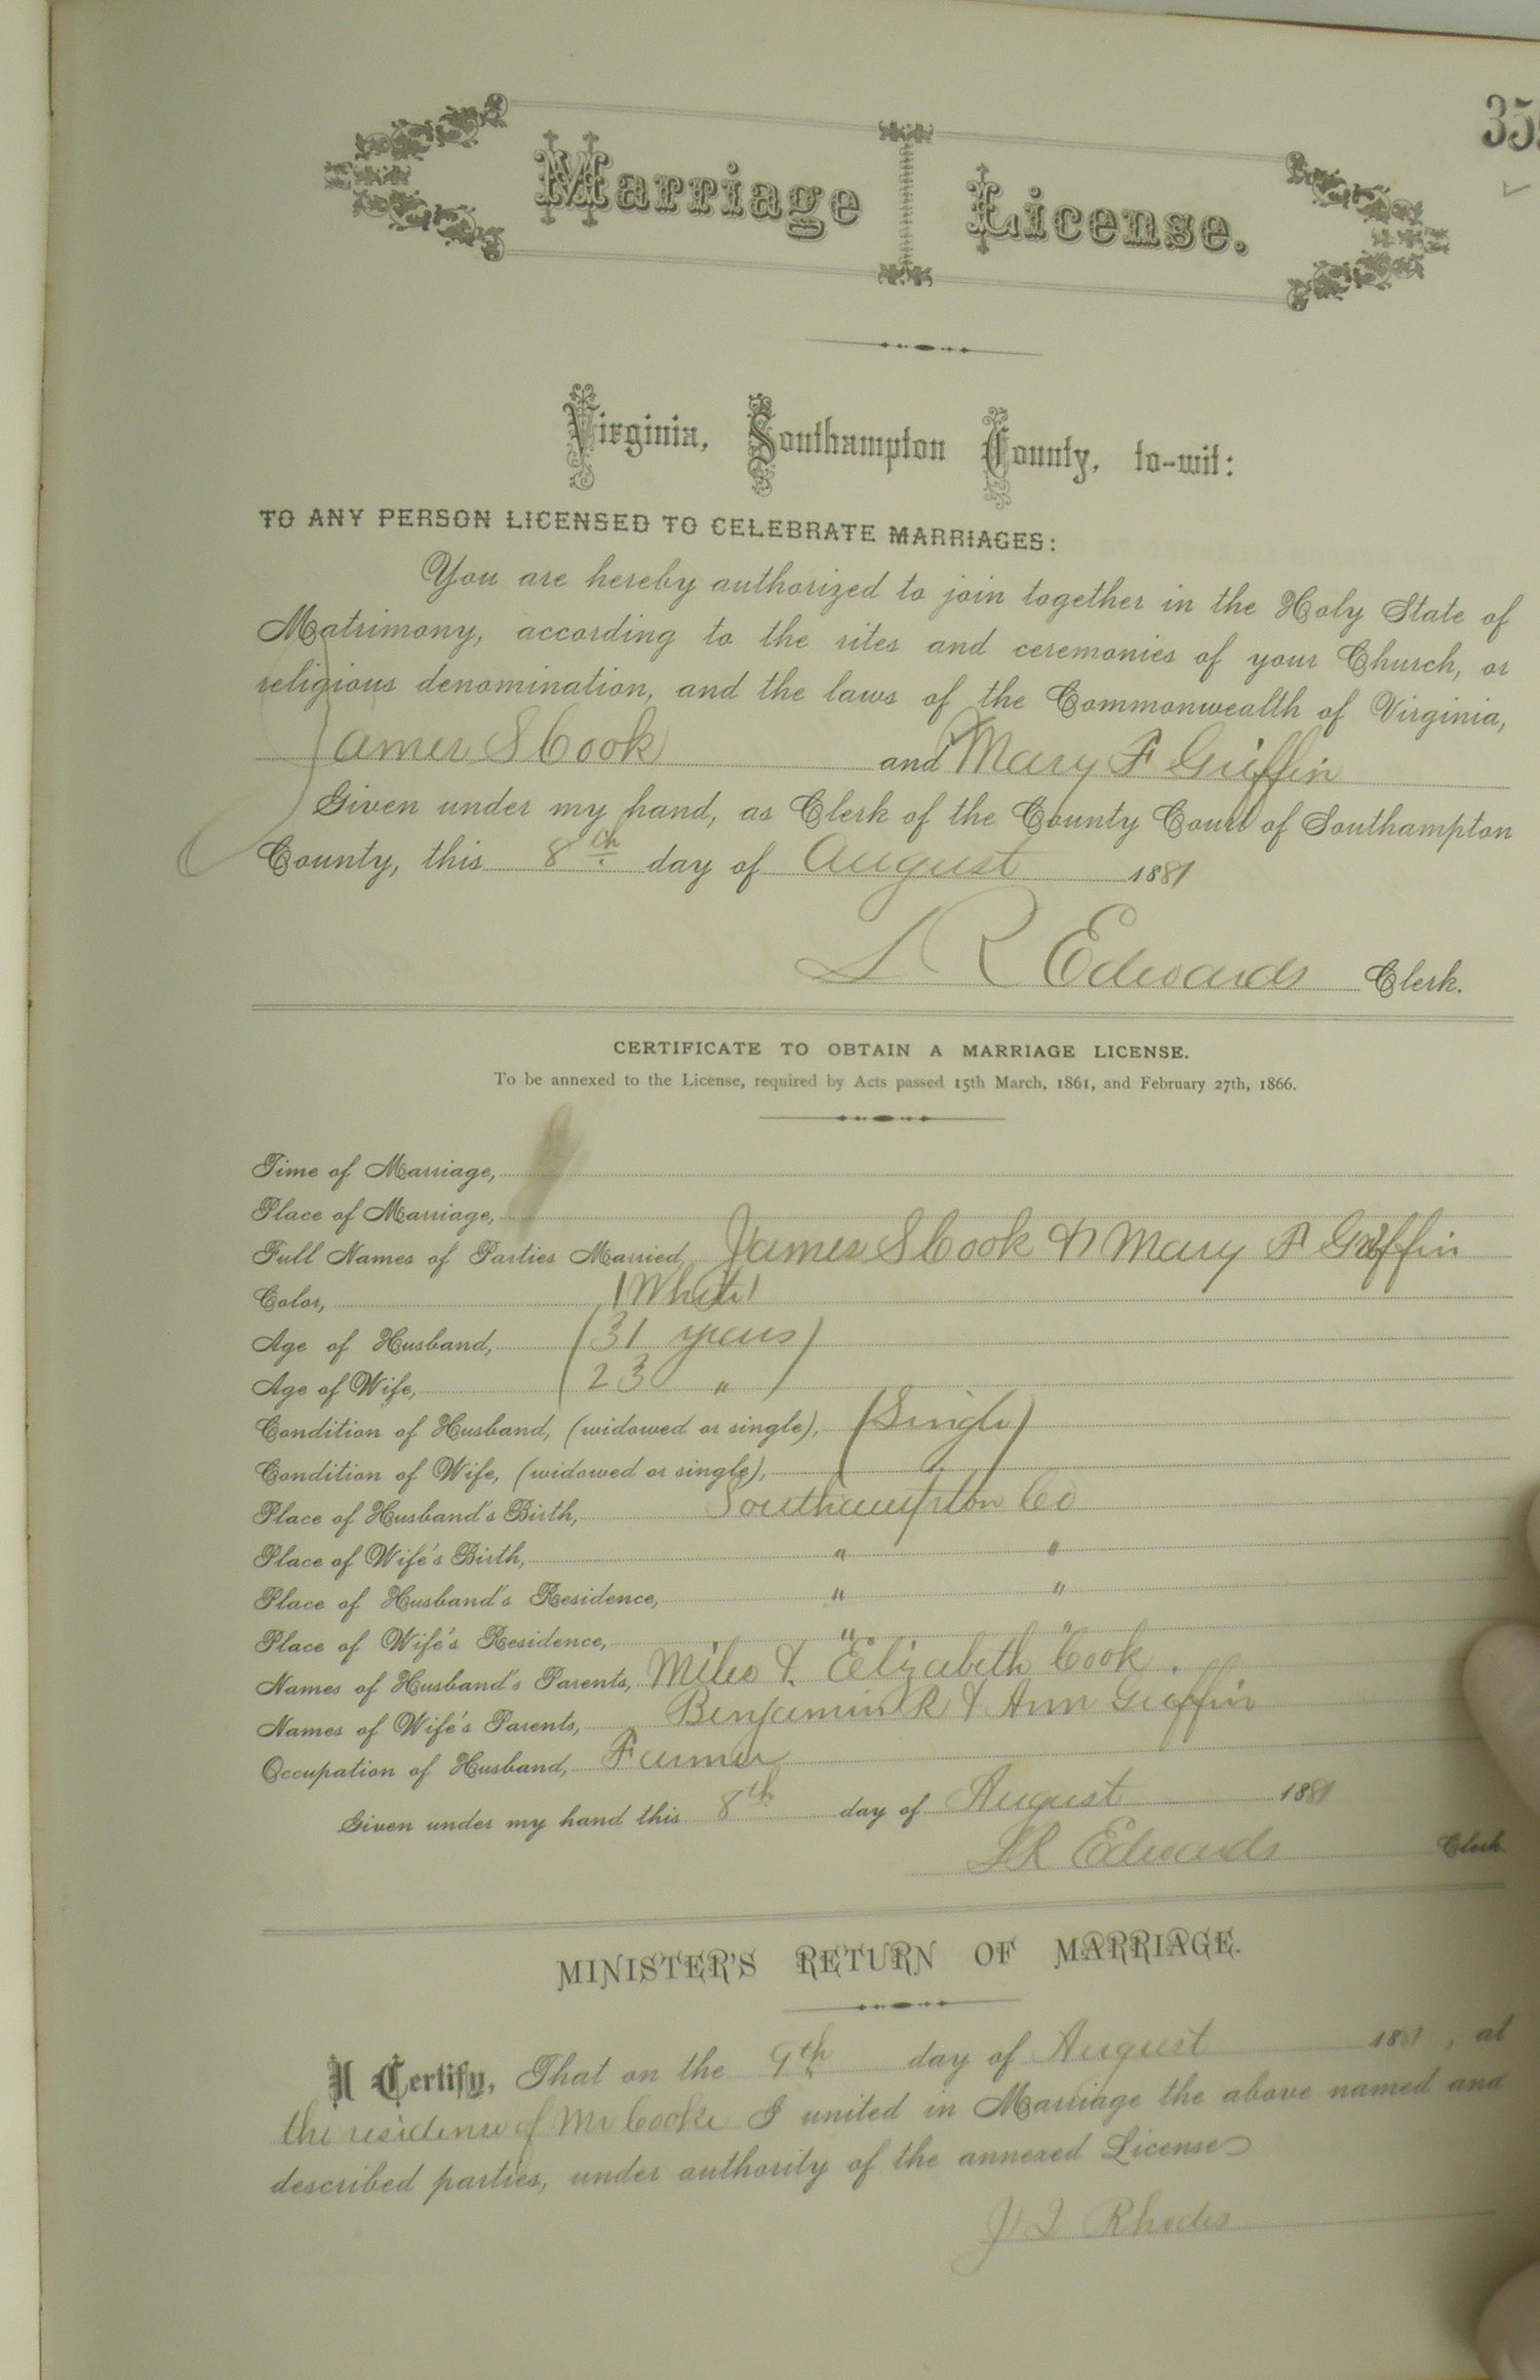 35
Marriage License.
Virginia, Southampton County, to-wit:
TO ANY PERSON LICENSED TO CELEBRATE MARRIAGES:
You are hereby authorized to join together in the Holy State of
Matrimony, according to the rites and ceremonies of your Church, or
religious denomination, and the laws of the Commonwealth of Virginia,
James S Cook and Mary F Griffin
Given under my hand, as Clerk of the County Court of Southampton
County, this 8th day of August 1881
L R Edwards Clerk.
CERTIFICATE TO OBTAIN A MARRIAGE LICENSE.
To be annexed to the License, required by Acts passed 15th March, 1861, and February 27th, 1866.
Time of Marriage,
Place of Marriage,
Full Names of Parties Married, James S Cook & Mary F Griffin
Color, (White)
Age of Husband, (31 years)
Age of Wife, (23 ")
Condition of Husband, (widowed or single), (Single)
Condition of Wife, (widowed or single), "
Place of Husband's Birth, Southampton Co
Place of Wife's Birth, " "
Place of Husband's Residence, " "
Place of Wife's Residence, " "
Names of Husband's Parents, Miles & Elizabeth Cook.
Names of Wife's Parents, Benjamin R & Ann Griffin
Occupation of Husband, Farmer
Given under my hand this 8th day of August 1881
L R Edwards Clerk
MINISTER'S RETURN OF MARRIAGE.
I Certify, That on the 9th day of August 1881, at
the residence of Mr Cooke I united in Marriage the above named and
described parties, under authority of the annexed License
Rhodes